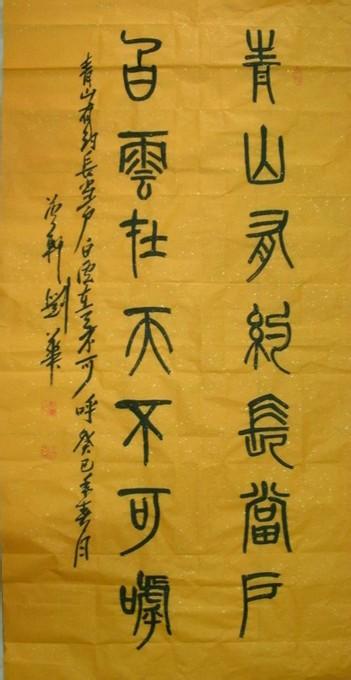 青山有約長當戶
白雲在天不可嘑
青山有約長當戶白雲在天不可呼癸巳年春月
軒劉華